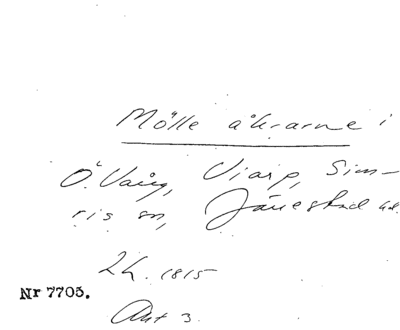 Mölle åkrarne i
Ö. Vång, Viarp, Sim-
ris sn, Järrestad hd.
Lh. 1815
Nr 7705.
Akt 3.